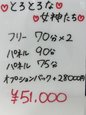 ♡とろとろな♡
女神たち♡
フリー 70分×2
パネル 90分
パネル 75分
オプションパック+28000円
¥51.000